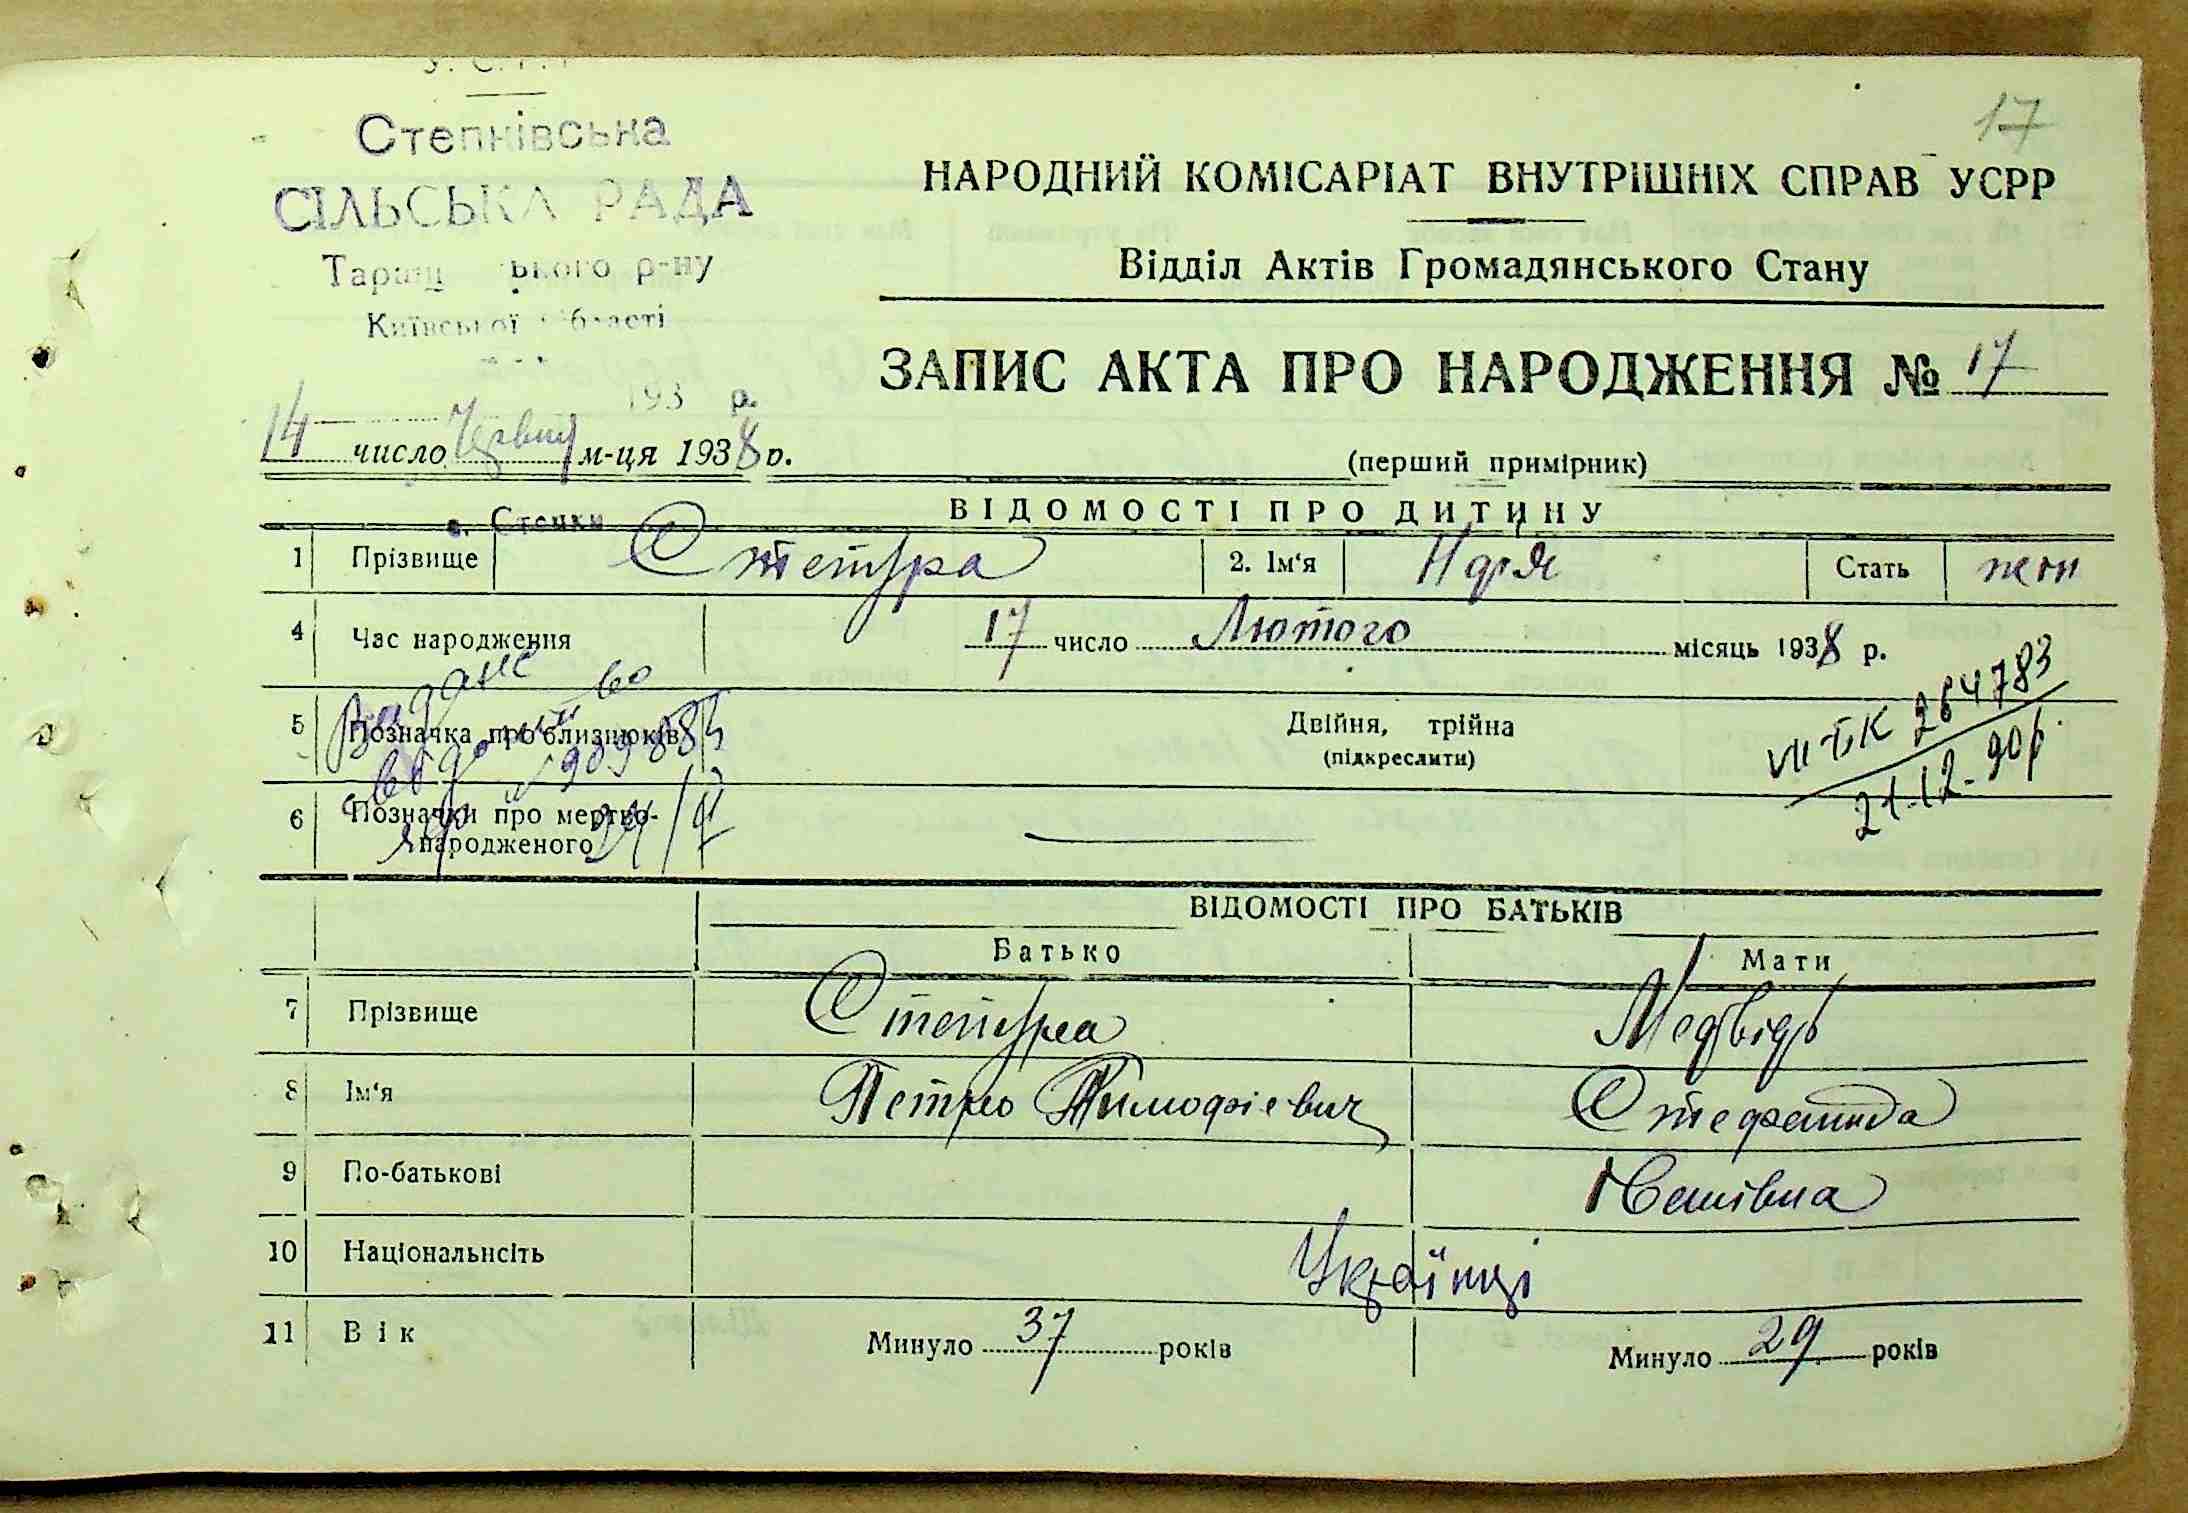 У. С. Р. Р
17
Степківська
СІЛЬСЬКА РАДА
Таращ ського р-ну
Київської області
193 р.
НАРОДНИЙ КОМІСАРІАТ ВНУТРІШНІХ СПРАВ УСРР
Відділ Актів Громадянського Стану
ЗАПИС АКТА ПРО НАРОДЖЕННЯ № 17
14 число Червня м-ця 1938 р.
(перший примірник)
с. Степки
ВІДОМОСТІ ПРО ДИТИНУ
1 Прізвище Степура 2. Ім'я Надія Стать жен
4 Час народження 17 число Лютого місяць 1938 р.
5 Позначка про близнюків Двійня, трійна
(підкреслити)
Видане
VII-БК 264783
21.12-90р.
6 Позначки про мертво-
народженого
ВІДОМОСТІ ПРО БАТЬКІВ
Батько Мати
7 Прізвище Степура Медвідь
8 Ім'я Петро Тимофієвич Стефанида
9 По-батькові
10 Національнсіть Українці
11 Вік Минуло 37 років Минуло 29 років